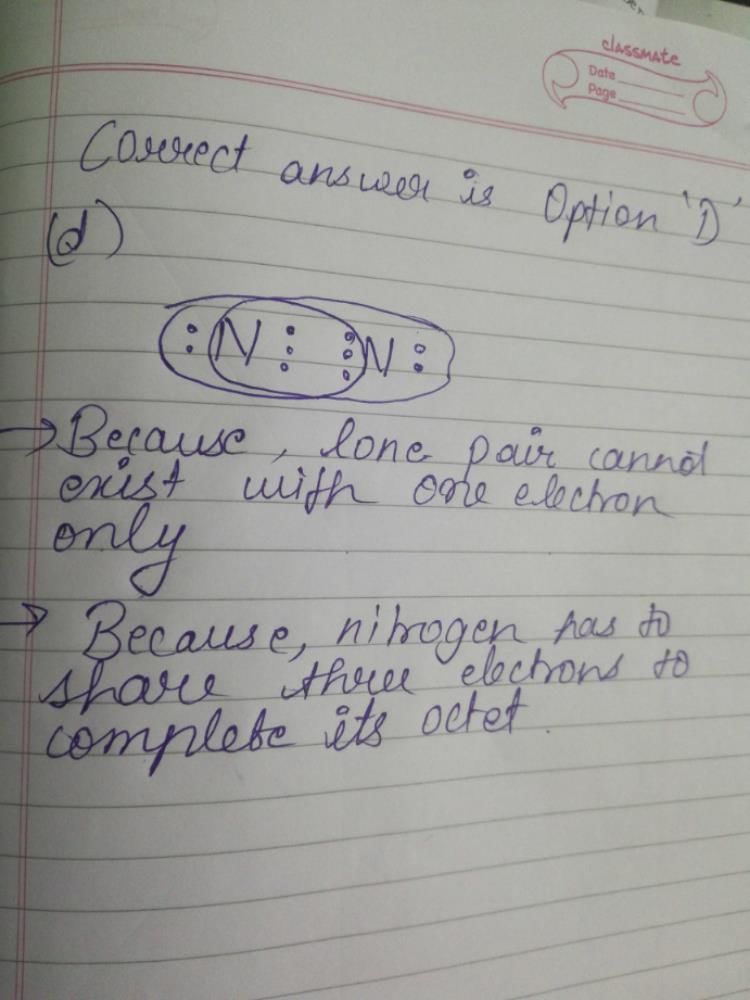 classmate
Date
Page
Correct answer is Option 'D'
(d)
:N: :N:
→ Because, lone pair cannot
exist with one electron
only
→ Because, nitrogen has to
share three electrons to
complete its octet.